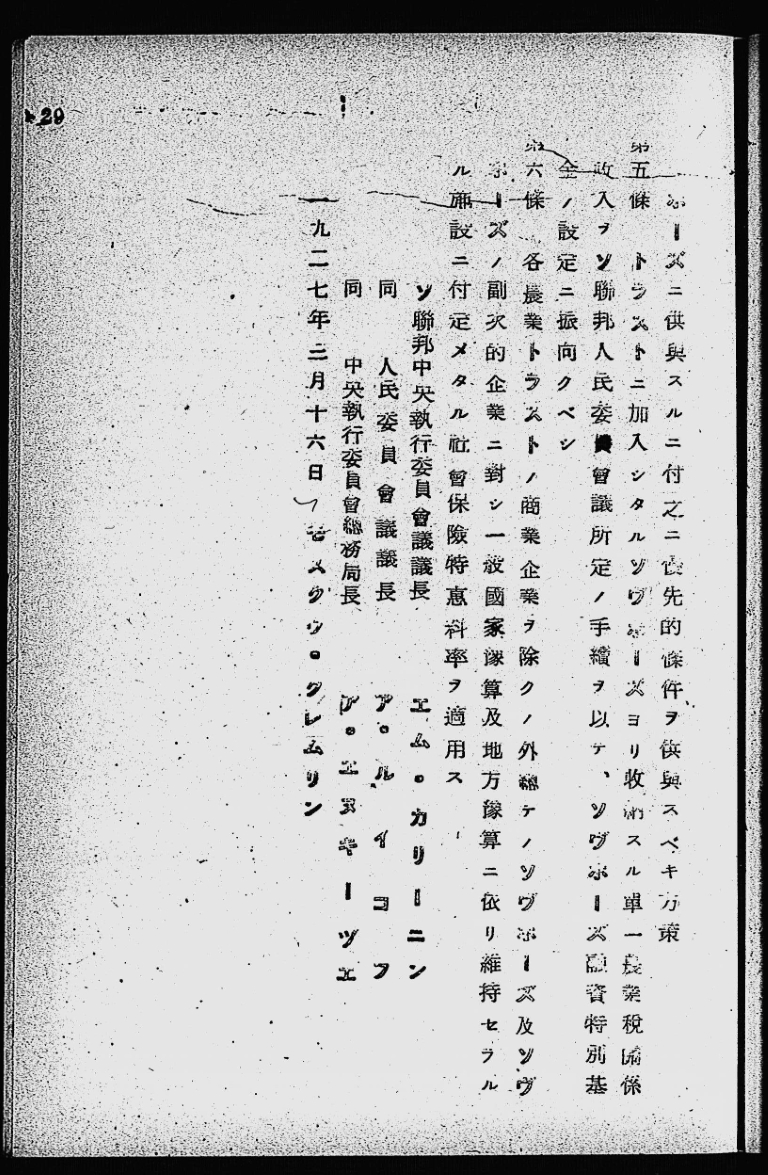 ホーズニ供與スルニ付之ニ優先的條件ヲ供與スベキ方策
第五條　トラストニ加入シタルソヴホーズヨリ收納スル單一農業稅關係
收入ヲソ聯邦人民委員會議所定ノ手續ヲ以テ、ソヴホーズ融資特別基
金ノ設定ニ振向クベシ
第六條　各農業トラストノ商業企業ヲ除クノ外總テノソヴホーズ及ソヴ
ホーズノ副次的企業ニ對シ一般國家豫算及地方豫算ニ依リ維持セラル
ル施設ニ付定メタル社會保險特惠料率ヲ適用ス
ソ聯邦中央執行委員會議議長　エム。カリーニン
同　人民委員會議議長　ア。ルイコフ
同　中央執行委員會總務局長　ア。エヌキーヅエ
一九二七年三月十六日　モスクワ。クレムリン
29